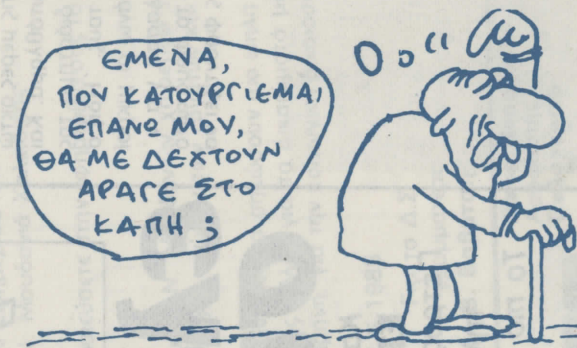 ΕΜΕΝΑ,
ΠΟΥ ΚΑΤΟΥΡΓΙΕΜΑΙ
ΕΠΑΝΩ ΜΟΥ,
ΘΑ ΜΕ ΔΕΧΤΟΥΝ
ΑΡΑΓΕ ΣΤΟ
ΚΑΠΗ ;